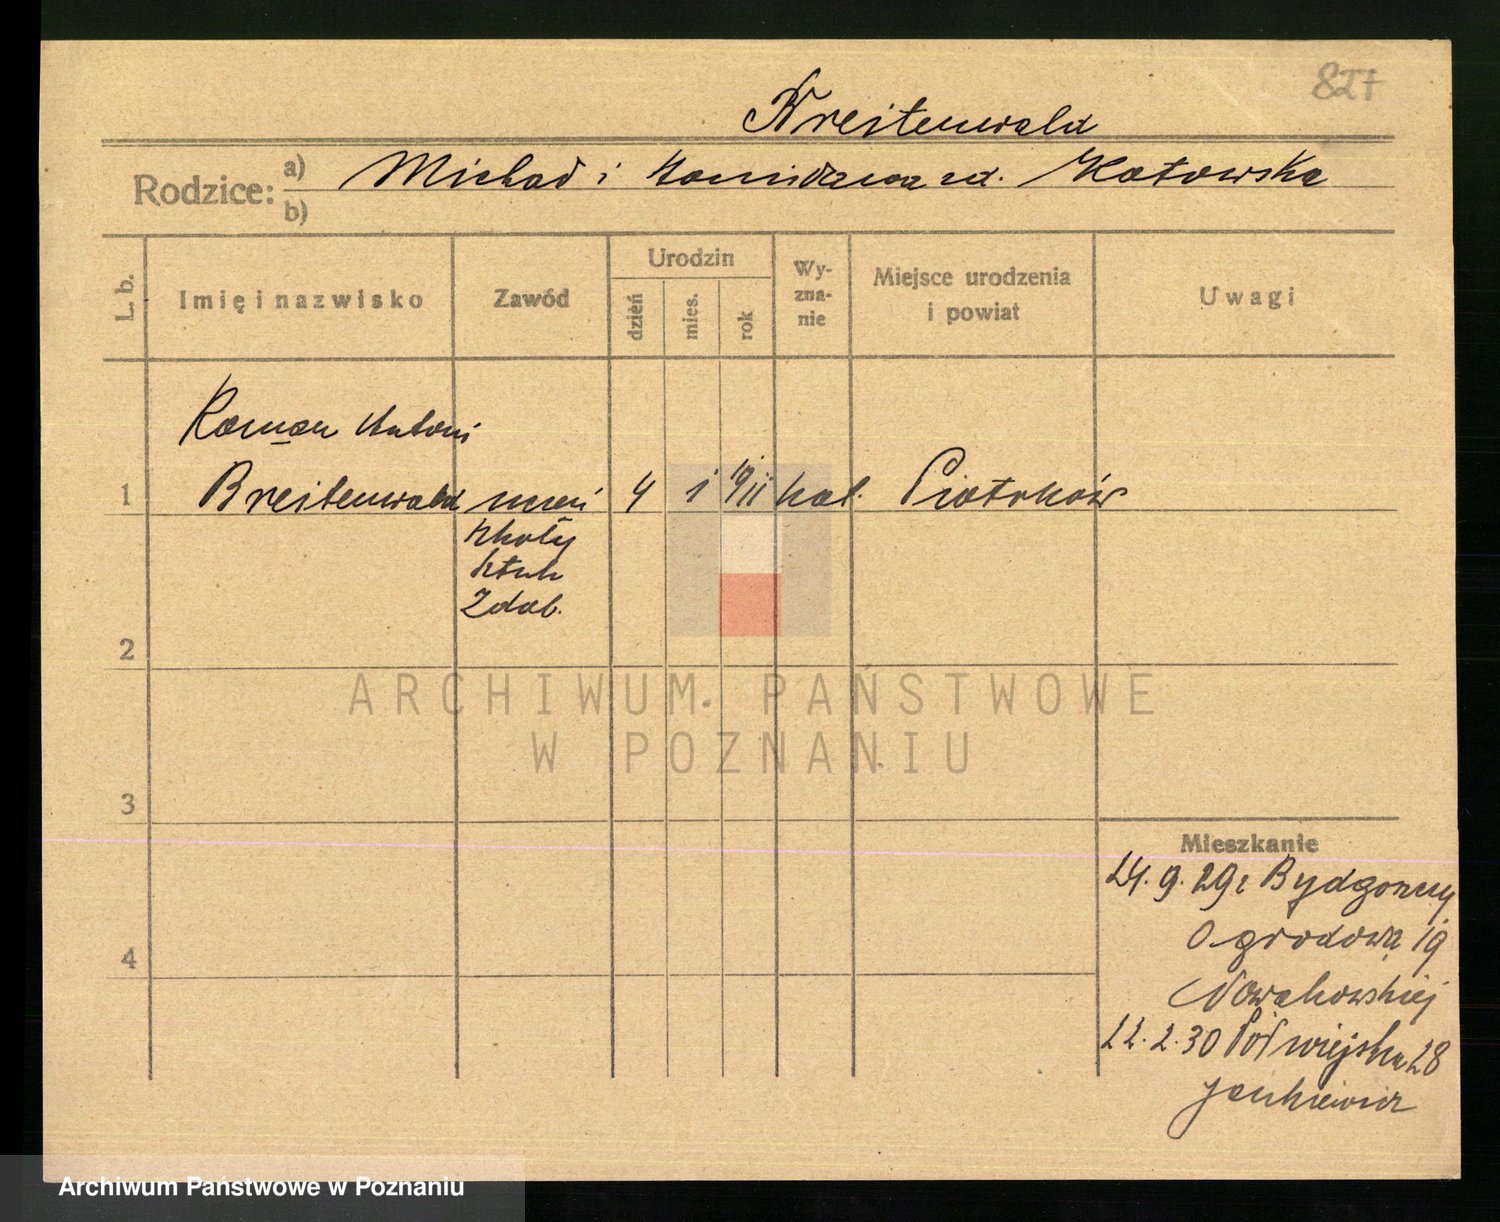 827
Breitenwald
Rodzice: a) Michał i Stanisława zd. Kotowska
b)
L. b.
Imię i nazwisko
Zawód
Urodzin
dzień
mies.
rok
Wy-
zna-
nie
Miejsce urodzenia
i powiat
Uwagi
Roman Antoni
1 Breitenwald uczeń 4 1 1911 kat. Piotrków
szkoły
sztuk
zdob.
2
3
4
Mieszkanie
24. 9. 29 z Bydgoszczy
Ogrodowa 19
Nowakowskiej
22. 2. 30 Półwiejska 28
Jankiewicz
ARCHIWUM PAŃSTWOWE
W POZNANIU
Archiwum Państwowe w Poznaniu